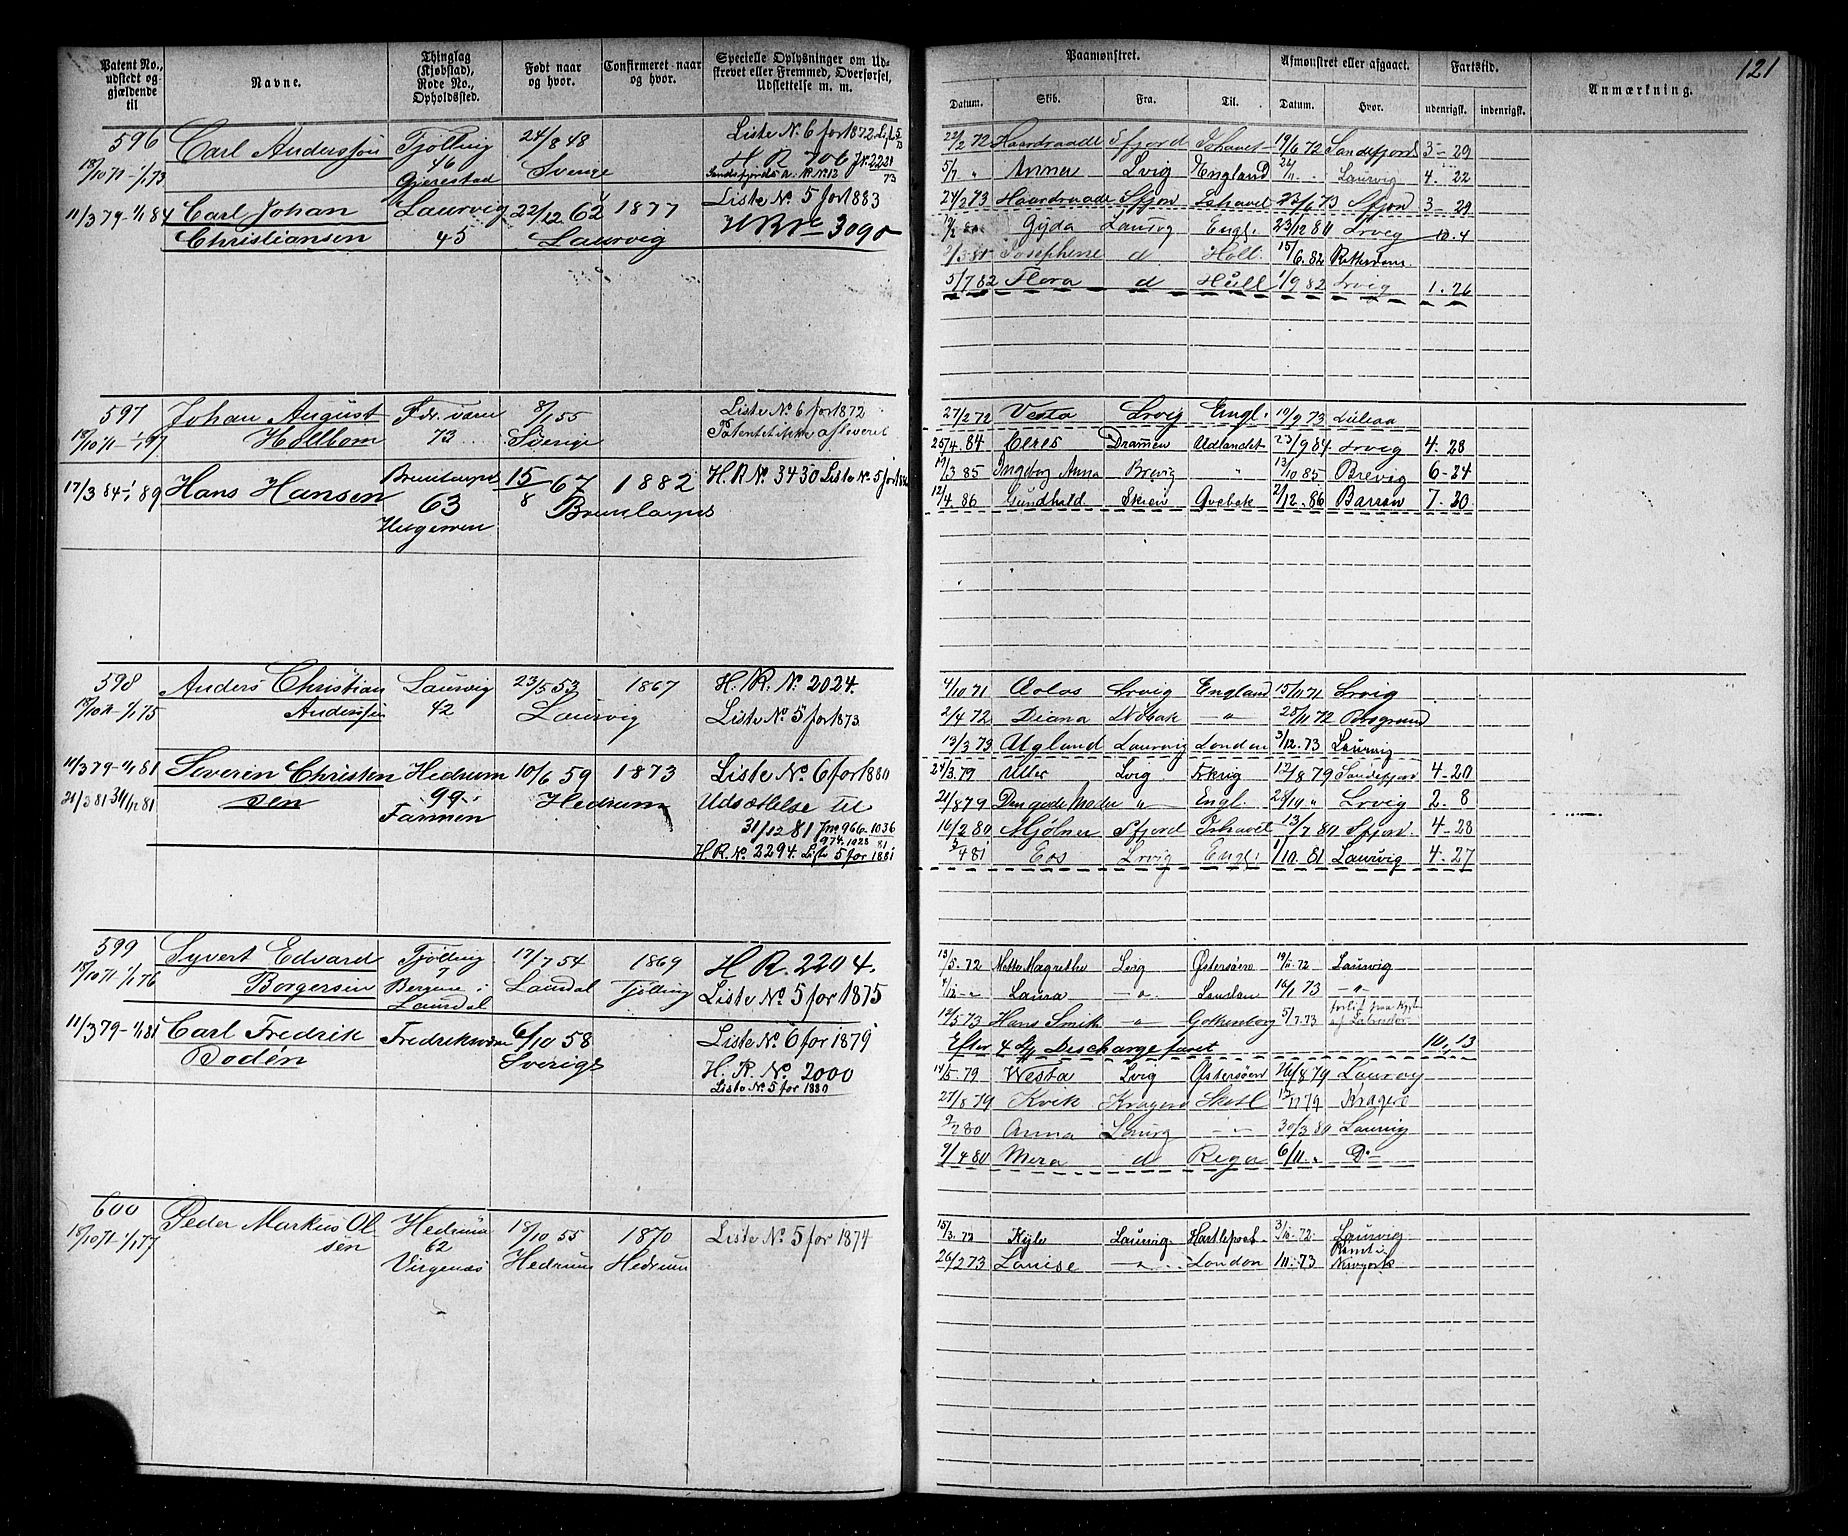 121
Patent No., udstedt og gjældende til
Navne.
Thinglag (Kjøbstad), Rode No., Opholdssted.
Født naar og hvor.
Confirmeret naar og hvor.
Specielle Oplysninger om Udskrevet eller Fremmed, Overførsel, Udslettelse m. m.
Paamønstret.
Afmønstret eller afgaaet.
Fartstid.
Anmærkning.
Datum.
Skib.
Fra.
Til.
Datum.
Hvor.
udenrigsk.
indenrigsk.
596 Carl Anderssøn Tjølling 24/8 48 Liste No 6 for 1872
18/10 71 - 1/1 73 46 Sverige H. R. 706
Gjerestad
11/3 79 - 1/1 84 Carl Johan Laurvig 22/12 62 1877 Liste No 5 for 1883
Christiansen 45 Laurvig H R No 3090
22/2 72 Haardraade Sfjord Ishavet 19/6 72 Sandefjord 3 - 29
5/7 " Anna Lvig England Laurvig 4. 22
24/2 73 Haardraade Sfjon Ishavet 23/6 73 Sfjord 3 - 29
Gyda Laurvg Engl. 23/12 80 Lrvig 10. 4
Josephine d Holl. 15/6. 82 Rotterdam
5/7 82 Flora d Hull 1/9 82 Lrvig 1. 26
597 Johan August Fdr. værn 8/1 55 Liste No 6 for 1872
Holtbom 73 Sverige Patentet ikke afleveret
17/3 84 - 1/1 89 Hans Hansen 15/8 67 1882 H. R No. 3430 Liste No 5 for
63
27/2 72 Vesta Lrvig Engl. 19/9 73
25/4. 84 Ceres Drammen Udlandet 23/9 84. Lrvig 4. 28
19/3 85 Ingeborg Anna Brevig " 13/10 85 Brevig 6 - 24
12/4. 86 Gundhild Skien 2/12. 86 7. 20
598 Anders Christian Laurvig 23/5 53 1867 H. R. No. 2024.
18/10 71 - 1/1 75 Anderssøn 42 Laurvig Liste No 5 for 1873
11/3 79 - 1/1 81 Severin Christen Hedrum 10/6 59 1873 Liste No. 6 for 1880
21/3 81 31/12 81 sen 99. Hedrum Udsættelse til
Farmen 31/12 81
H. R. No. 2294. Liste 5 for 1881
4/10 71 Aolos Lrvig England 15/11 71 Lrvig
2/4 72 Diana — " 28/11 72 Porsgrund
13/3 73 Ugland Laurvig London 3/12. 73 Laurvig
24/3. 79 Uller Lvig 12/8 79 Sandefjord 4 - 20
21/8 79 Den gode Moder " Engl. 28/10 " Lrvig 2. 8
16/2 80 Mjølner Sfjord Ishavet 13/7 80 Sfjord. 4 - 28
5/4 81 Eos Lrvig Engl. 1/10. 81 Laurvig 4. 27
599 Syvert Edvard Tjølling 17/7 54 1869 H R. 2204.
18/10 71 - 1/1 76 Borgersen 7 Laurdal Tjølling Liste No. 5 for 1875
Laurdal
11/3 79 - 1/1 81 Carl Fredrik Fredriksværn 6/10 58 Liste No. 6 for 1879
Bodén Sverige H. R. No. 2000
Liste No. 5 for 1880
13/5. 72 Mette Magrethe Lvig Østersøen 19/11. 72 Laurvig
Laura — " 16/1 73 — " —
12/5 73 Hans Smith — " Gothenborg 5/7. 73 forlist
Efter Discharge faret 10, 13
14/5 79 Westa Lvig Østersøen 26/8 79 Laurvig
27/8 79 Kvik Kragerø 79 Kragerø
9/2 80 Anna Laurg 30/3 80 Laurvig
9/4 80 Mera d Riga 6/11. " Do
600 Peder Markus Ol Hedrum 18/10 55 1870 Liste No. 5 for 1874
18/10 71 - 1/1 77 sen 62 Hedrum Hedrum
15/3. 72 Laurvig. Hartlepool 72. Laurvig
26/2 73 Louise — " London 73 Newyork